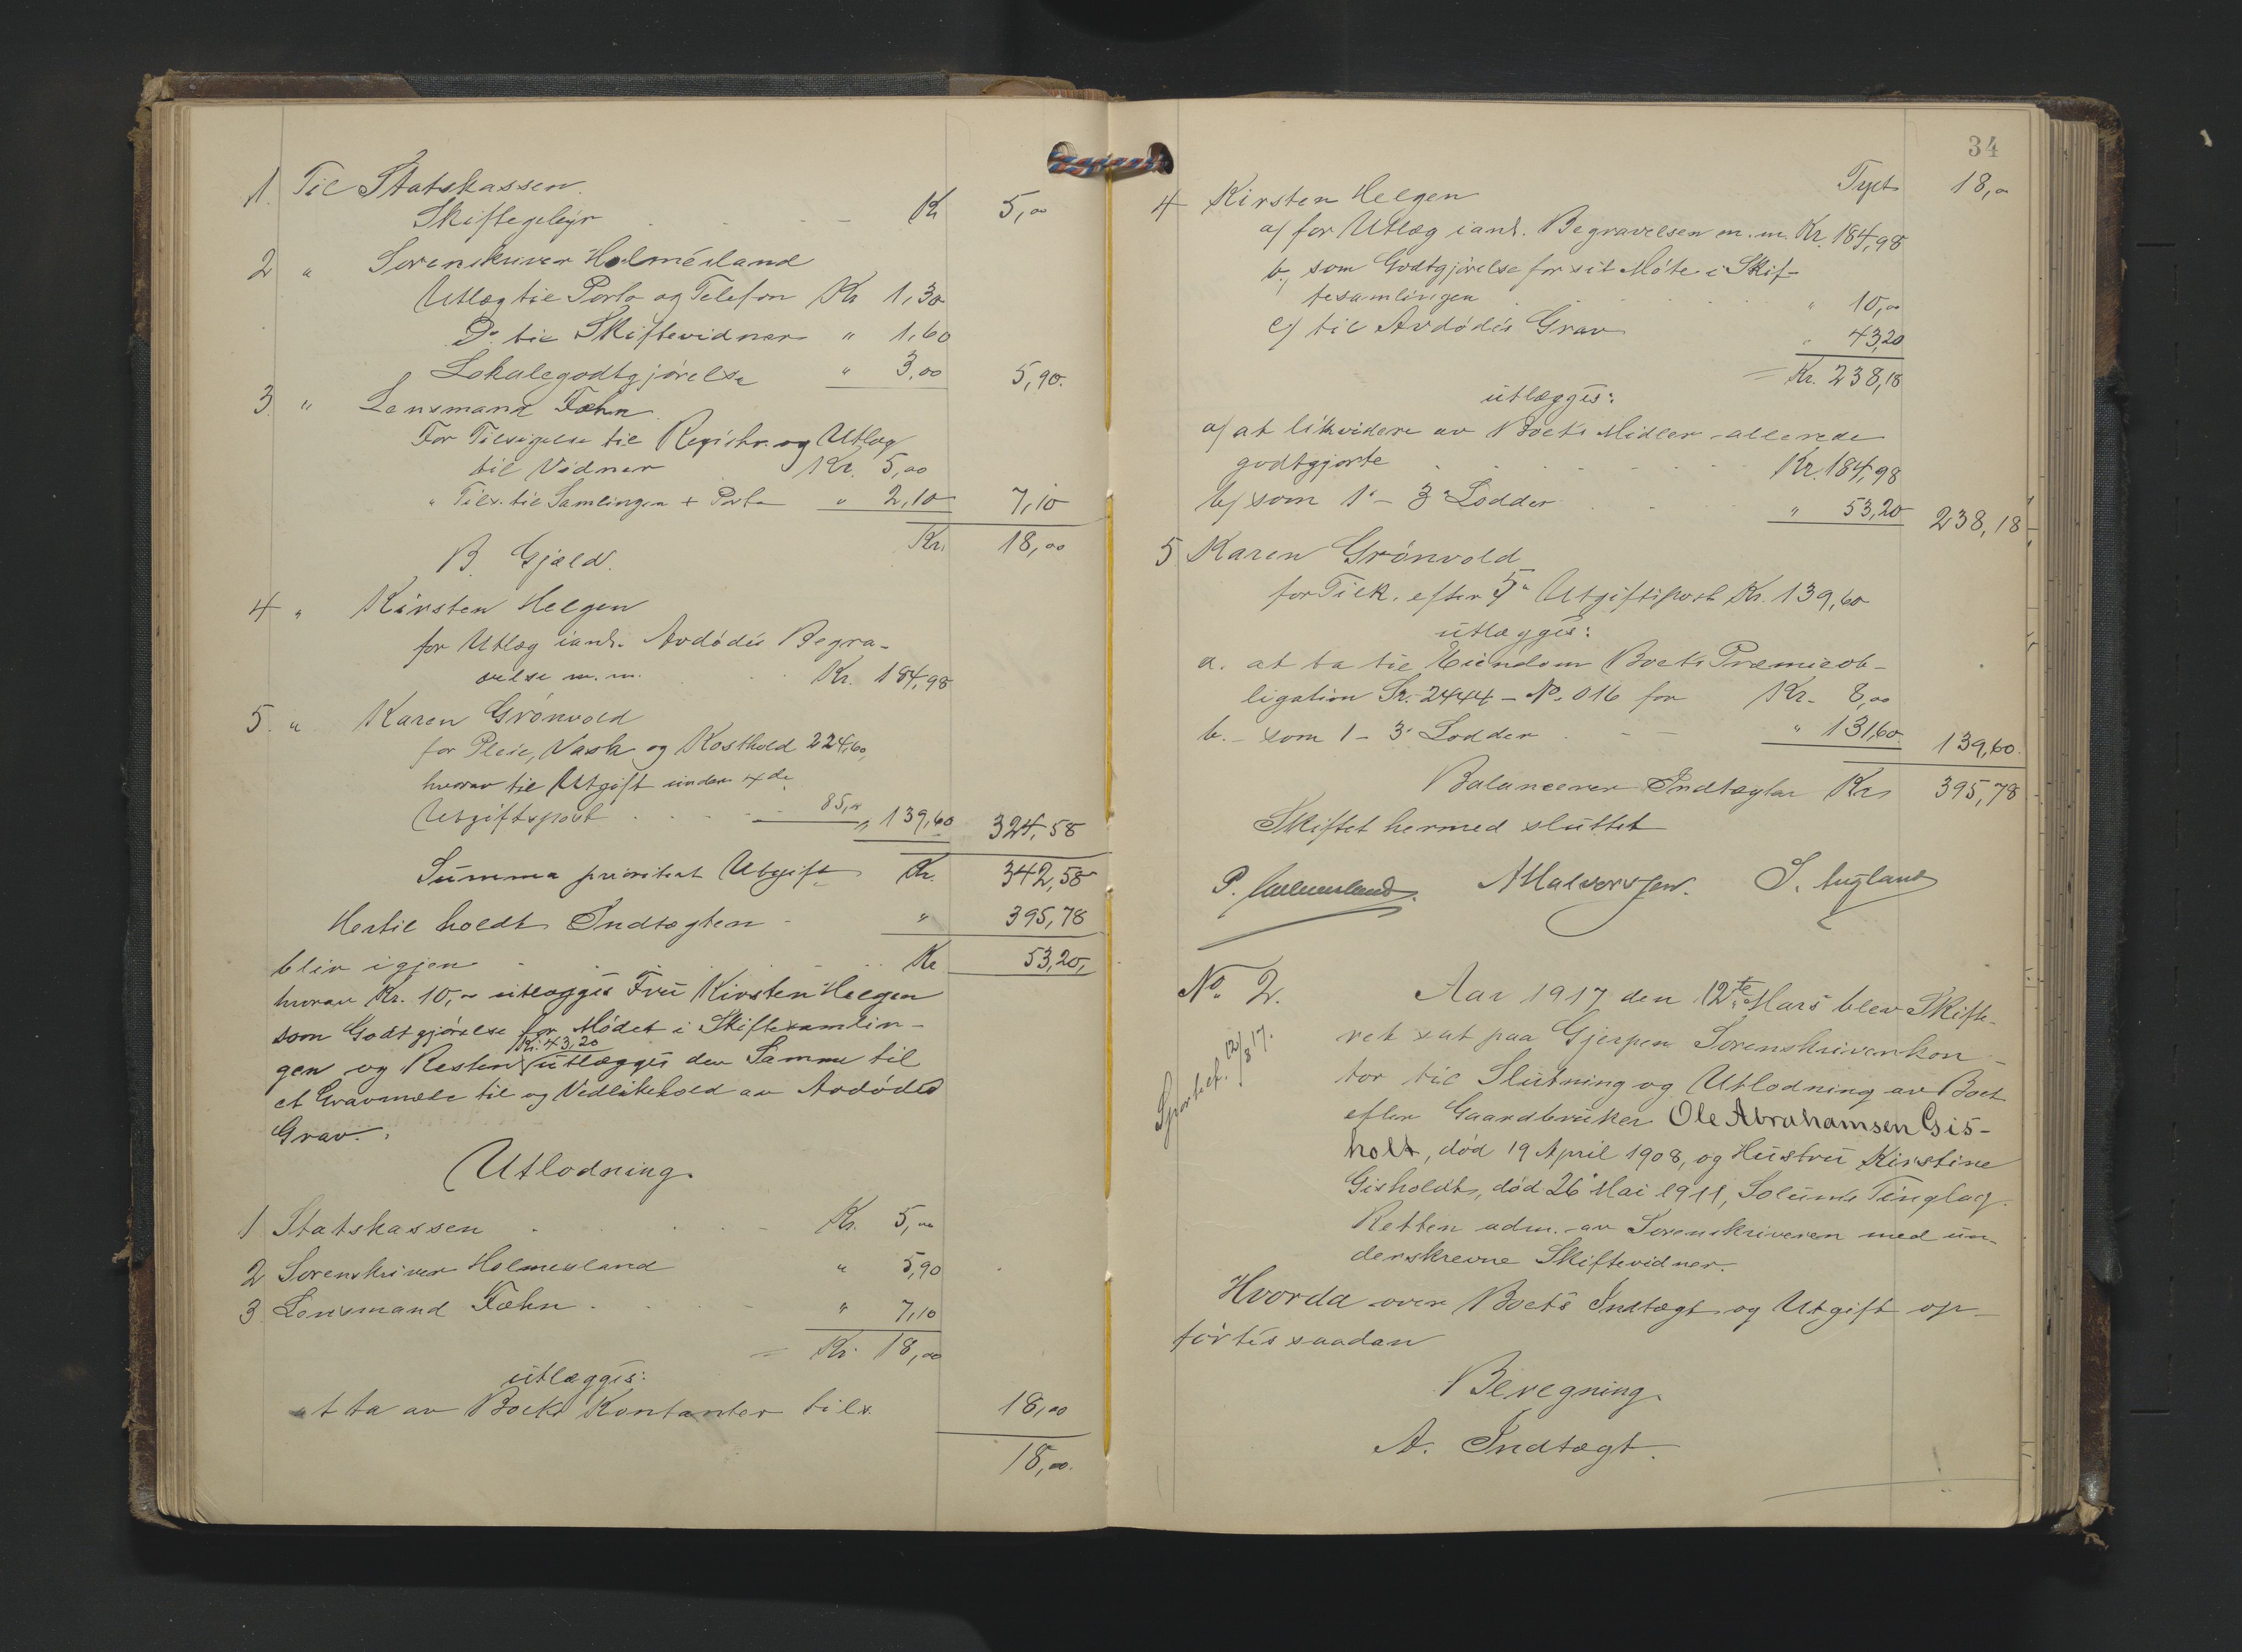 1. Til Statskassen
Skiftegebyr Kr 5,00
2 " Sorenskriver Holmesland
Utlæg til Porto og Telefon Kr 1,30
Do til Skiftevidner " 1,60
Lokalegodtgjörelse " 3,00 5,90.
3. " Lensmand Fæhn
For Tilsigelse til Registr. og Utlæg
til Vidner Kr. 5,00
" Tils. til Samlingen + Porto " 2,10 7,10
Kr. 18,00
B. Gjæld.
4 " Kirsten Helgen
for Utlæg i anl. Avdödes Begra-
velse m.m. Kr. 184,98
5. " Karen Grönvold
for Pleie, Vask og Kosthold 224,60,
hvorav til Utgift under 4de
Utgiftspost 85,00 " 139,60 324,58
Summa prioritert Utgift Kr. 342,58
Hertil holdt Indtægten " 395,78
blir igjen Kr 53,20,
hvorav Kr. 10,00 utlægges Fru Kirsten Helgen
som Godtgjörelse for Mödet i Skiftesamlin-
gen og Resten Kr. 43,20 utlægges den Samme til
et Gravmæle til og Vedlikehold av Avdödes
Grav.
Utlodning.
1 Statskassen Kr. 5,00
2 Sorenskriver Holmesland " 5,90
3 Lensmand Fæhn " 7,10
= Kr. 18,00
utlægges:
at ta av Boets Kontanter tils. 18,00
18,00.
34
Tyet 18,00
4 Kirsten Helgen
a/ for Utlæg i anl. Begravelsen m.m. Kr. 184,98
b, som Godtgjörelse for sit Möte i Skif-
tesamlingen " 10,00
c/ til Avdödes Grav " 43,20
= Kr. 238,18
utlægges:
a/ at likvidere av Boets Midler allerede
godtgjorte Kr. 184,98
b/ som 1 - 3 Lodder " 53,20 238,18
5 Karen Grönvold
for Tilk. efter 5" Utgiftspost Kr. 139,60
utlægges:
a. at ta til Eiendom Boets Præmieob-
ligation Sr. 2444 - No. 016 for Kr. 8,00
b. - som 1 - 3 Lodder " 131,60 139,60.
Balancerer Indtægten Kr. 395,78
Skiftet hermed sluttet
P. Holmesland. A Halvorsen. S. Augland
No. 2. Aar 1917 den 12te Mars blev Skifte-
ret sat paa Gjerpen Sorenskriverkon-
Sportlet. 12/3 17.
tor til Slutning og Utlodning av Boet
efter Gaardbruker Ole Abrahamsen Gis-
holt, död 19 April 1908, og Hustru Kirstine
Gisholdt, död 26 Mai 1911, Solums Tinglag.
Retten adm. av Sorenskriveren med un-
derskrevne Skiftevidner.
Hvorda over Boets Indtægt og Utgift op-
förtes saadan
Beregning.
A. Indtægt.